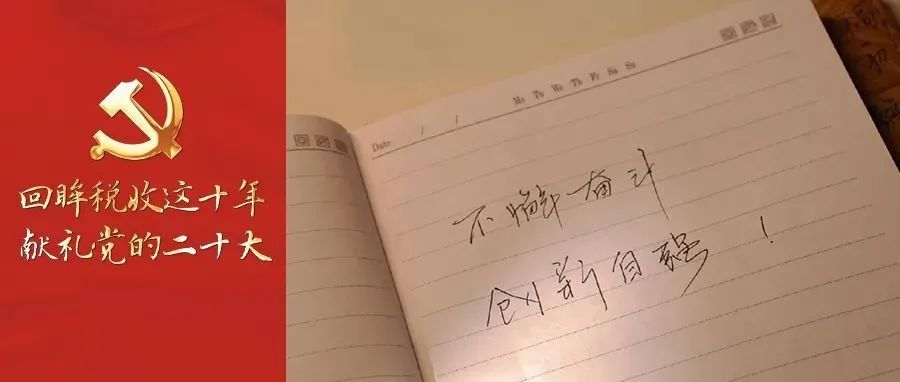 回眸税收这十年
献礼党的二十大
Mo Tu We Th Fr Sa Su
Date / /
不懈奋斗
创新自强！